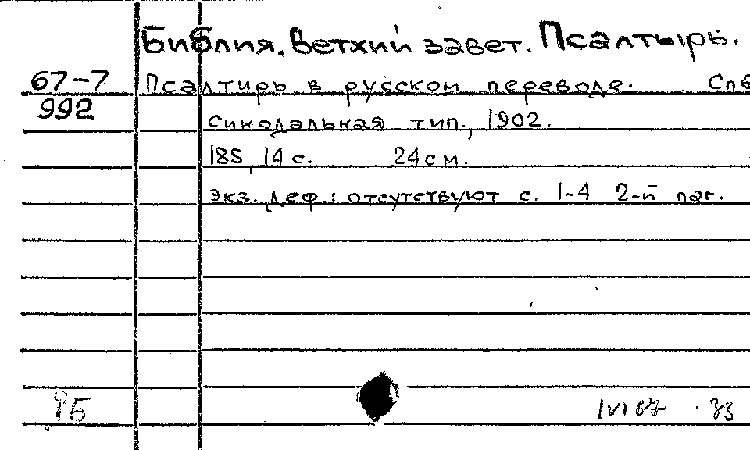 Библия. Ветхий завет. Псалтырь.
67-7 Псалтирь в русском переводе. Спб
992
Синодальная тип., 1902.
185, 14 с. 24 см.
Экз. деф.: отсутствуют с. 1-4 2-й паг.